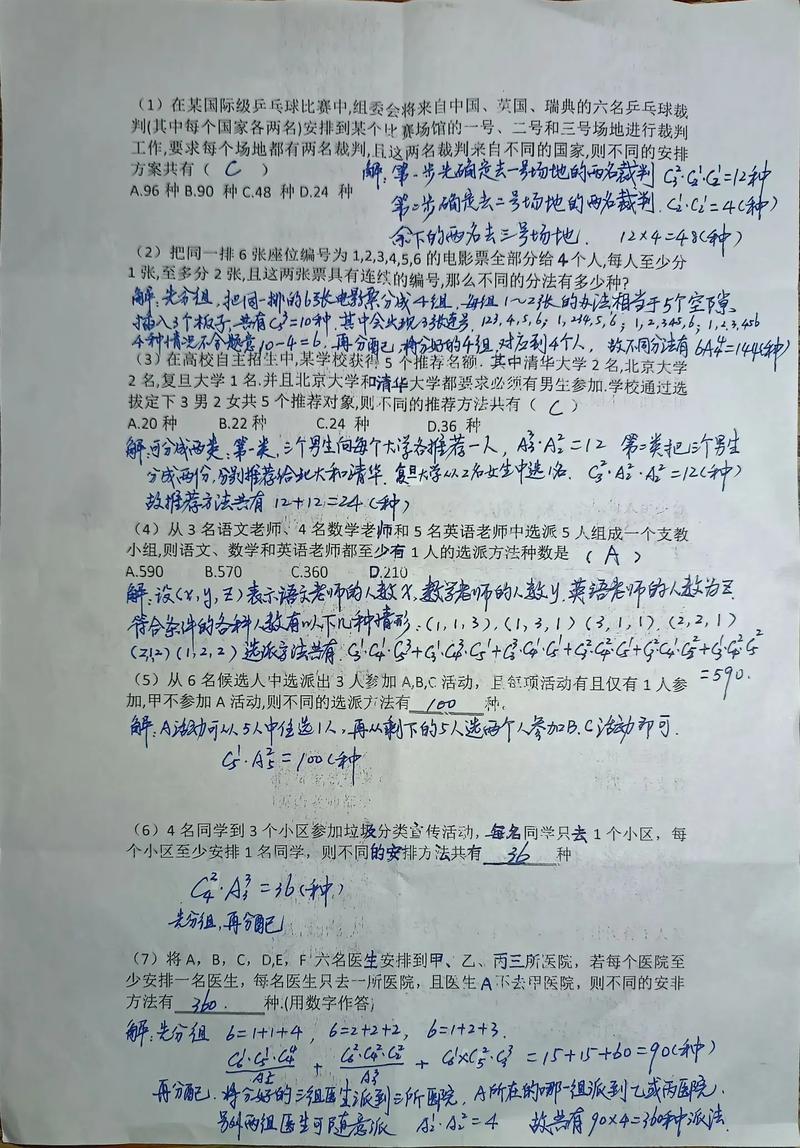 （1）在某国际级乒乓球比赛中,组委会将来自中国、英国、瑞典的六名乒乓球裁
判(其中每个国家各两名)安排到某个比赛场馆的一号、二号和三号场地进行裁判
工作,要求每个场地都有两名裁判,且这两名裁判来自不同的国家,则不同的安排
方案共有（ C ） 解：第一步先确定去一号场地的两名裁判 C₃²·C₂¹·C₂¹=12种
A.96 种 B.90 种 C.48 种 D.24 种 第二步确定去二号场地的两名裁判. C₂¹·C₂¹=4(种)
余下的两名去三号场地. 12×4=48(种)
（2）把同一排 6 张座位编号为 1,2,3,4,5,6 的电影票全部分给 4 个人,每人至少分
1 张,至多分 2 张,且这两张票具有连续的编号,那么不同的分法有多少种?
解：先分组，把同一排的6张电影票分成4组，每组1～2张的办法相当于5个空隙
插入3个板子,共有C₅³=10种,其中会出现3张连号 123,4,5,6；1,234,5,6；1,2,345,6；1,2,3,456
4种情况不合题意 10-4=6，再分配，将分好的4组对应到4个人，故不同分法有6A₄⁴=144(种)
（3）在高校自主招生中,某学校获得 5 个推荐名额．其中清华大学 2 名,北京大学
2 名,复旦大学 1 名.并且北京大学和清华大学都要求必须有男生参加.学校通过选
拔定下 3 男 2 女共 5 个推荐对象,则不同的推荐方法共有（ C ）
A.20 种 B.22 种 C.24 种 D.36 种
解:可分成两类:第一类,三个男生向每个大学各推荐一人，A₃³·A₂²=12 第二类把三个男生
分成两份,分别推荐给北大和清华.复旦大学从2名女生中选1名. C₃²·A₂²·A₂²=12(种)
故推荐方法共有 12+12=24(种)
（4）从 3 名语文老师、4 名数学老师和 5 名英语老师中选派 5 人组成一个支教
小组,则语文、数学和英语老师都至少有 1 人的选派方法种数是（ A ）
A.590 B.570 C.360 D.210
解：设(x,y,z)表示语文老师的人数x,数学老师的人数y.英语老师的人数为z.
符合条件的各种人数有以下几种情形:(1,1,3),(1,3,1)(3,1,1).(2,2,1)
(2,1,2)(1,2,2)选派方法共有.C₃¹·C₄¹·C₅³+C₃¹·C₄³·C₅¹+C₃³·C₄¹·C₅¹+C₃²·C₄²·C₅¹+C₃²C₄¹·C₅²+C₃¹·C₄²C₅²
=590.
（5）从 6 名候选人中选派出 3 人参加 A,B,C 活动，且每项活动有且仅有 1 人参
加,甲不参加 A 活动,则不同的选派方法有 100 种。
解:A活动可以从5人中任选1人,再从剩下的5人选两个人参加B.C活动即可.
C₅¹·A₅²=100(种
（6）4 名同学到 3 个小区参加垃圾分类宣传活动，每名同学只去 1 个小区，每
个小区至少安排 1 名同学，则不同的安排方法共有 36 种
C₄²·A₃³=36(种)
先分组,再分配
（7）将 A，B，C，D,E，F 六名医生安排到甲、乙、丙三所医院，若每个医院至
少安排一名医生，每名医生只去一所医院，且医生 A 不去甲医院，则不同的安非
方法有 360. 种.(用数字作答)
解:先分组 6=1+1+4，6=2+2+2，6=1+2+3.
C₆¹·C₅¹·C₄⁴/A₂² + C₆²·C₄²·C₂²/A₃³ + C₆¹×C₅²·C₃³=15+15+60=90(种)
再分配.将分好的三组医生派到三所医院,A所在的哪一组派到乙或丙医院,
另外两组医生可随意派 A₂¹·A₂²=4 故共有90×4=360种派法.